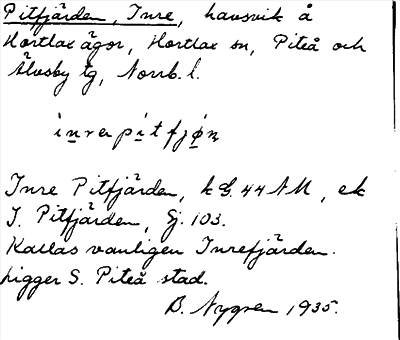 Pitfjärden, Inre, havsvik å
Hortlax ägor, Hortlax sn, Piteå och
Älvsby tg, Norrb. l.
inrepitfjøn
Inre Pitfjärden, k G. 44 NM, ek
I. Pitfjärden, Gj. 103.
Kallas vanligen Inrefjärden.
Ligger S. Piteå stad.
B. Nygren 1935.